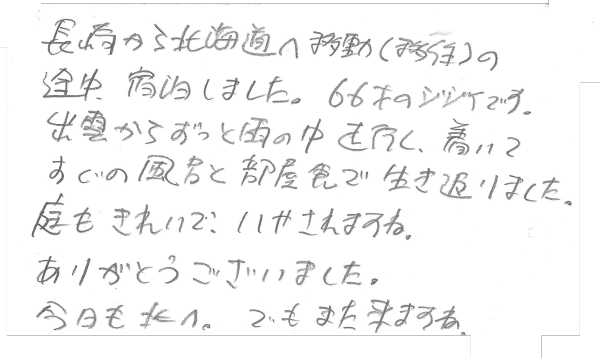 長崎から北海道へ移動(移住)の
途中、宿泊しました。66才のジジイです。
出雲からずっと雨の中を行く、着いて
すぐの風呂と部屋食で生き返りました。
庭もきれいで、いやされますね。
ありがとうございました。
今日も北へ。でもまた来ますね。